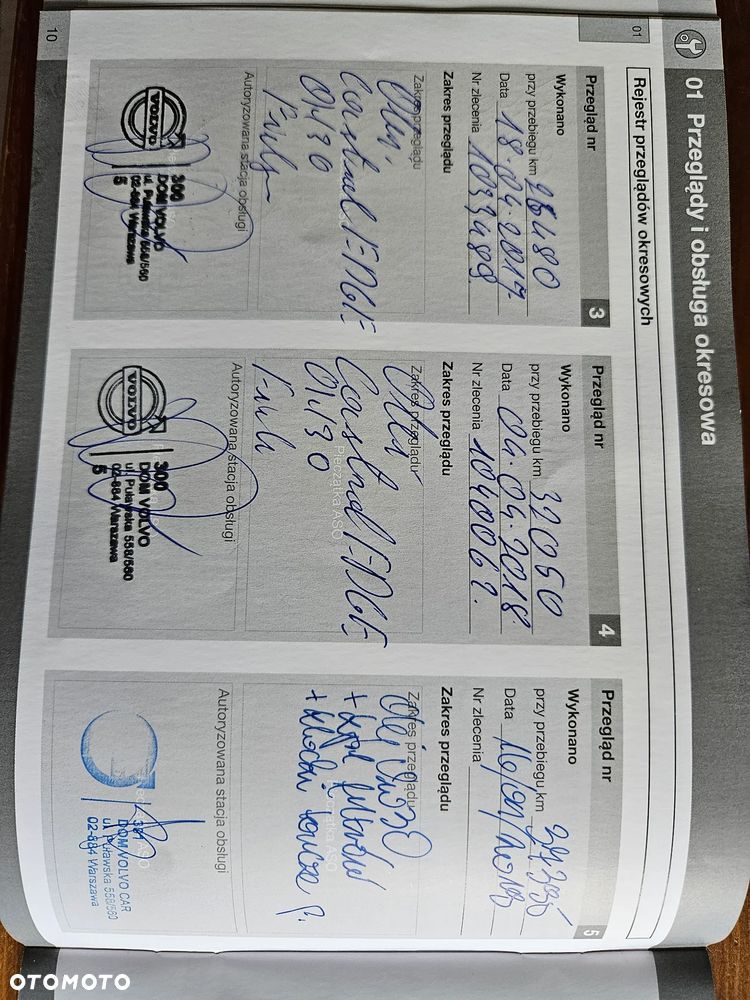 01 Przeglądy i obsługa okresowa
01
Rejestr przeglądów okresowych
Przegląd nr 3
Wykonano
przy przebiegu km 26480
Data 18.04.2017
Nr zlecenia 1033489
Zakres przeglądu
Zakres przeglądu
Olej
Castrol EDGE
0W30
Autoryzowana stacja obsługi
VOLVO
300
DOM VOLVO
ul. Puławska 558/560
02-884 Warszawa
5
Przegląd nr 4
Wykonano
przy przebiegu km 32050
Data 04.04.2018
Nr zlecenia 1040062
Zakres przeglądu
Zakres przeglądu
Pieczątka ASO
Olej
Castrol EDGE
0W30
Autoryzowana stacja obsługi
VOLVO
300
DOM VOLVO
ul. Puławska 558/560
02-884 Warszawa
5
Przegląd nr 5
Wykonano
przy przebiegu km
Data
Nr zlecenia
Zakres przeglądu
Zakres przeglądu
Olej 0W30
+ kpl filtrów
+ klocki
Autoryzowana stacja obsługi
DOM VOLVO CAR
ul. Puławska 558/560
02-884 Warszawa
10
OTOMOTO